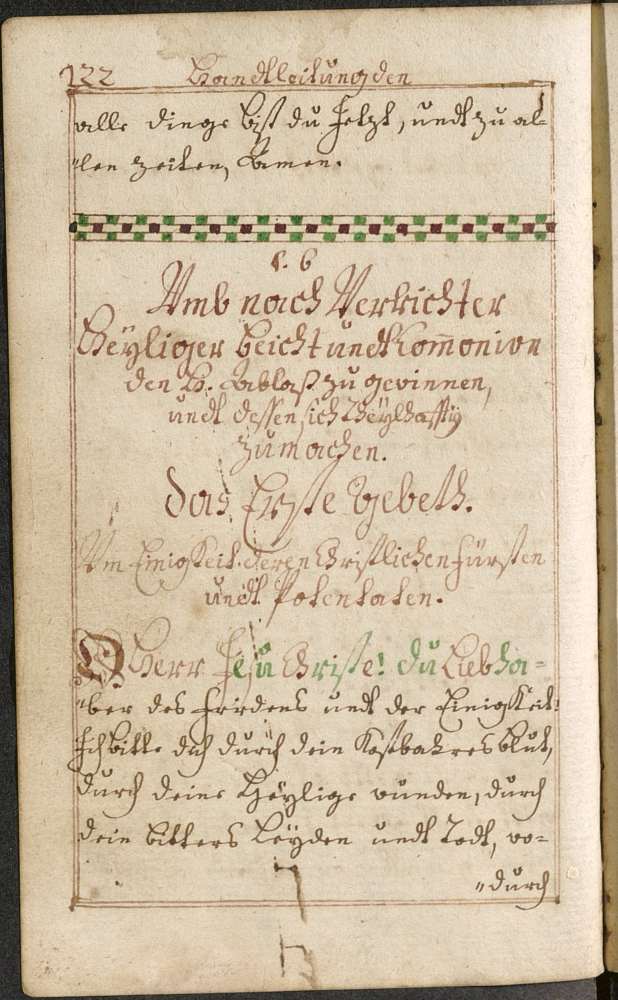 122 Handtleitung den
alle dinge bist du Jetzt, undt zu al=
"len zeiten, Amen.
Umb nach Verrichter
Heyliger beicht undt Kom̅onion
den H. Ablaß zu gewinnen,
undt dessen sich Theylhafftig
zu machen.
das Erste Gebeth.
Um Einigkeit deren Christlichen fürsten
undt Potentaten.
O Herr Jesu Christe! du Liebha=
"ber des fridens undt der Einigkeit!
Ich bitte dich durch dein Kostbahres blut,
durch deine Heylige wunden, durch
dein bitters Leyden undt Todt, wo=
"durch